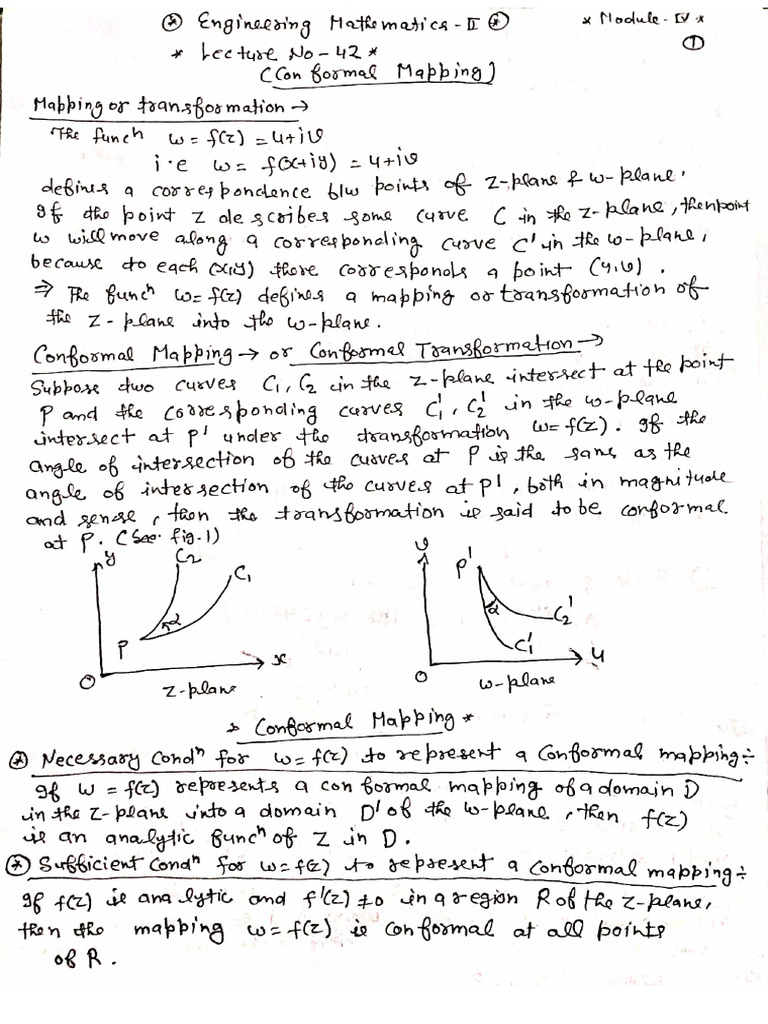 ⊛ Engineering Mathematics-II ⊛ * Module-IV *
* Lecture No-42 * ①
(Conformal Mapping)
Mapping or transformation →
The funcⁿ w = f(z) = u+iv
i.e w = f(x+iy) = u+iv
defines a correspondence b/w points of z-plane & w-plane.
If the point z describes some curve C in the z-plane, then point
w will move along a corresponding curve C' in the w-plane,
because to each (x,y) there corresponds a point (u,v).
⇒ The funcⁿ w=f(z) defines a mapping or transformation of
the z-plane into the w-plane.
Conformal Mapping → or Conformal Transformation →
Suppose two curves C₁, C₂ in the z-plane intersect at the point
P and the corresponding curves C₁', C₂' in the w-plane
intersect at P' under the transformation w=f(z). If the
angle of intersection of the curves at P is the same as the
angle of intersection of the curves at P', both in magnitude
and sense, then the transformation is said to be conformal
at P. (See fig.1)
y C₂ C₁ α P O x
z-plane
v P' α C₂' C₁' O u
w-plane
* Conformal Mapping *
⊛ Necessary Condⁿ for w=f(z) to represent a conformal mapping÷
If w = f(z) represents a conformal mapping of a domain D
in the z-plane into a domain D' of the w-plane, then f(z)
is an analytic funcⁿ of z in D.
⊛ Sufficient Condⁿ for w=f(z) to represent a conformal mapping÷
If f(z) is analytic and f'(z) ≠0 in a region R of the z-plane,
then the mapping w=f(z) is conformal at all points
of R.